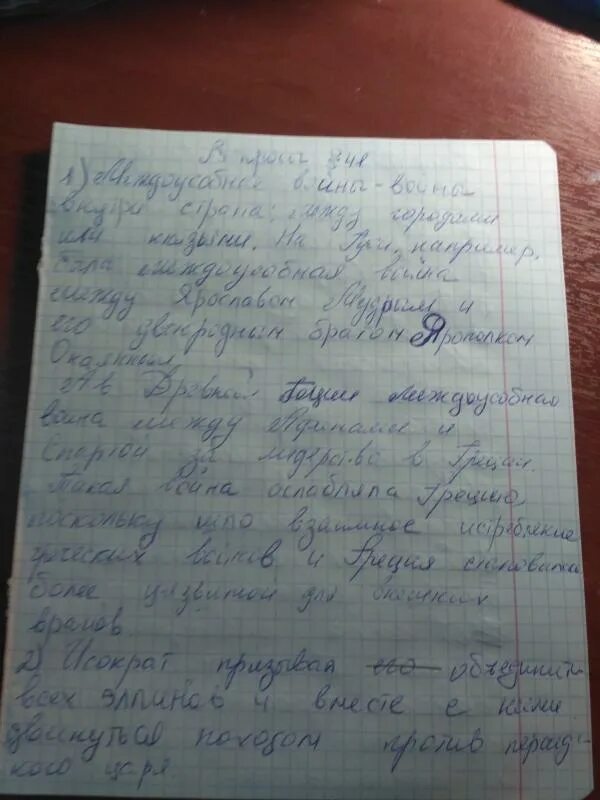 Вопросы §41
1) Междоусобные войны - войны
внутри страна; между городами
или князьями. На Руси, например,
была междоусобная война
между Ярославом Мудрым и
его двоюродным братом Ярополком
Окаянным.
А в Древней Греции междоусобная
война между Афинами и
Спартой за лидерство в Греции.
Такая война ослабляла Грецию,
поскольку шло взаимное истребление
греческих воинов и Греция становится
более уязвимой для внешних
врагов.
2) Исократ призывал его объединить
всех эллинов и вместе с ними
двинуться походом против персид-
кого царя.